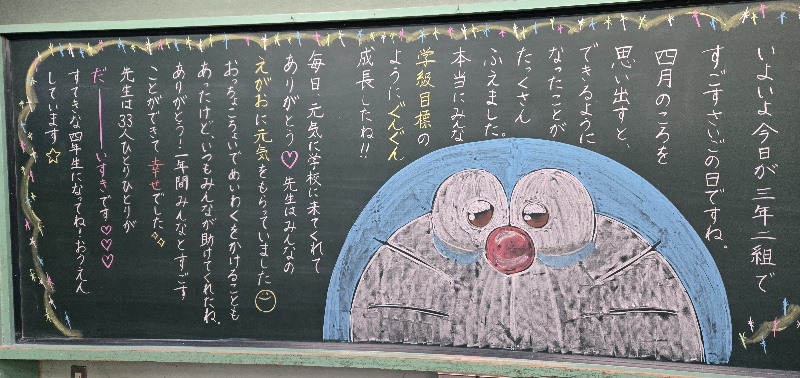 いよいよ今日が三年二組で
すごすさいごの日ですね。
四月のころを
思い出すと、
できるように
なったことが
たっくさん
ふえました。
本当にみな
学級目標の
ようにぐんぐん
成長したね!!
毎日、元気に学校に来てくれて
ありがとう♡先生はみんなの
えがおに元気をもらっていました☺
おっちょこちょいでめいわくをかけることも
あったけど、いつもみんなが助けてくれたね。
ありがとう!一年間みんなとすごす
ことができて幸せでした✨
先生は33人ひとりひとりが
だ――――いすきです♡♡♡
すてきな四年生になってね!おうえん
しています☆